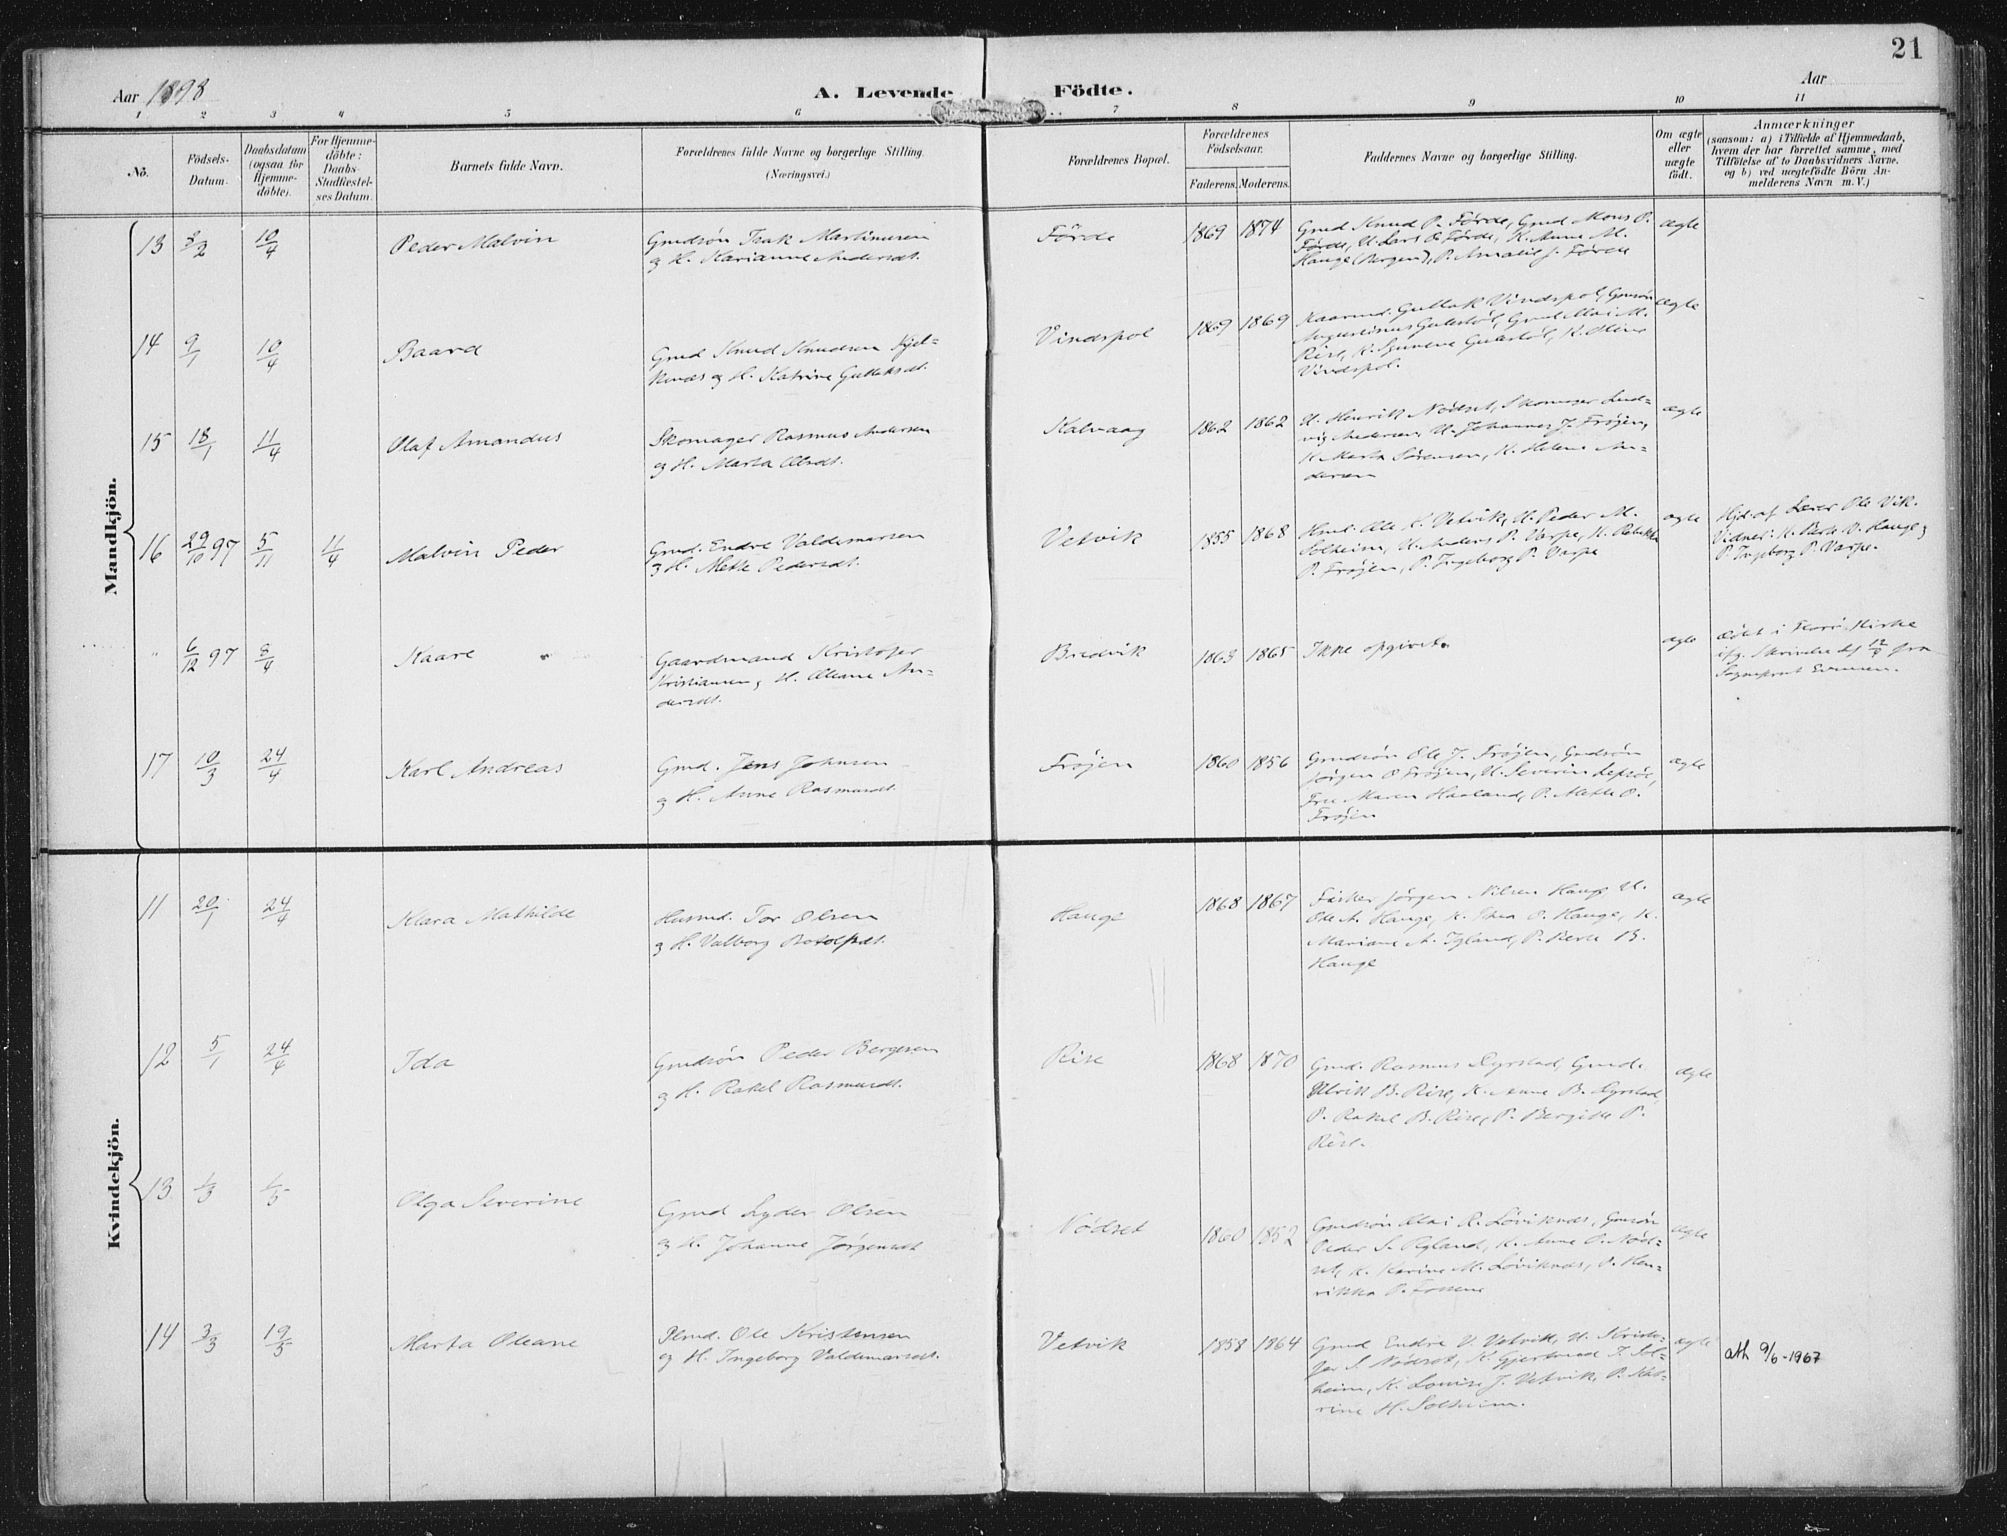 21
Aar 1898
A. Levende
Födte.
Aar
1 2 3 4 5 6 7 8 9 10 11
No.
Födsels-
Datum.
Daabsdatum
(ogsaa for
Hjemme-
döbte).
For Hjemme-
döbte:
Daabs-
Stadfæstel-
ses Datum.
Barnets fulde Navn.
Forældrenes fulde Navne og borgerlige Stilling.
(Næringsvei.)
Forældrenes Bopæl.
Forældrenes
Födselsaar.
Faderens. Moderens.
Faddernes Navne og borgerlige Stilling.
Om ægte
eller
uægte
födt.
Anmærkninger
(saasom: a) i Tilfælde af Hjemmedaab,
hvem der har forrettet samme, med
Tilföielse af to Daabsvidners Navne,
og b) ved uægtefödte Börn An-
melderens Navn m. V.)
Mandkjön.
13 3/2 10/4 Peder Malvin
Gmdsön Isak Martinusen
og H. Karianne Andersdt.
Förde 1869 1874
Gmd Knud P. Förde, Gmd Mons P.
Förde, U. Lars O Förde, K. Anne M.
Hauge (Bergen), P. Amalie J. Förde
ægte
14 9/1 10/4 Baard
Gmd Knud Knudsen Hjel-
kenæs og H. Katrine Gulleksdt.
Vindspol 1869 1869
Kaarmd. Gullak Vindspol, Gmsön
Augustinus Gulestöl, Gmd Mai M.
Rise, K. Gulestöl, K. Oline
Vindspol.
ægte
15 18/1 11/4 Olaf Amandus
Skomager Rasmus Andersen
og H. Marta Olsdt.
Kalvaag 1862 1862
U. Henrik Nödset, Skomager Lud-
vig Andersen, U. Johannes J. Fröjen,
K. Marta Sörensen, K. Helene An-
dersen
ægte
16 29/10 97 5/11 11/4 Malvin Peder
Gmd. Endre Valdemarsen
og H. Mette Pedersdt.
Vetvik 1855 1868
Hmd. Ole K. Vetvik, U. Peder M.
Solheim, U. Anders P. Varpe, K. Rebekka
P. Fröjen, P. Ingeborg P. Varpe
ægte
Hjd. af Lærer Ole Vik.
Vidner: K. Berte O. Hauge og
P. Ingeborg P. Varpe.
" 6/12 97 8/4 Kaare
Gaardmand Kristofer
Kristiansen og H. Oleane An-
dersdt.
Bredvik 1863 1865
Ikke opgivet.
ægte
Döbt i Florö Kirke
ifg. Skrivelse af 12/8 fra
Sogneprest
17 10/3 24/4 Karl Andreas
Gmd. Jens Johnsen
og H. Anne Rasmusdt.
Fröjen 1860 1856
Gmdsön Ole J. Fröjen, Gmdsön
Jörgen O Fröjen, U. Severin Lefsöe,
Fru Maren Haaland, P. Mette O.
Fröjen
ægte
Kvindekjön.
11 20/1 24/4 Klara Mathilde
Husmd. Tor Olsen
og H. Valborg Botolfsdt.
Hauge 1868 1867
Fisker Jörgen Nilsen Hauge, U.
Ole A. Hauge, K. O. Hauge, K.
Mariane A. Igland, P. Berte B.
Hauge
ægte
12 5/1 24/4 Ida
Gmdsön Peder Bergesen
og H. Rakel Rasmusdt.
Rise 1868 1870
Gmd. Rasmus Myrstad, Gmd.
Ulrik B. Rise, K. Anne B. Myrstad,
P. Rakel B. Rise, P. Bergitte P.
Rise.
ægte
13 1/3 1/5 Olga Severine
Gmd Lyder Olsen
og H. Johanne Jörgensdt
Nödset 1860 1852
Gmdsön Mai R. Löviknes, Gmsön
Peder S. Ryland, K. Anne O. Nöd-
set, K. Karine M. Löviknes, P. Hen-
rikka P.
ægte
14 3/3 19/5 Marta Oleane
Plmd. Ole Kristensen
og H. Ingeborg Valdemarsdt.
Vetvik 1858 1864
Gmd Endre V. Vetvik, U. Kristo-
fer S. Nödset, K. Gjertrud T. Sol-
heim, K. Lovise J. Vetvik, P. Kat-
rine H. Solheim.
ægte
att 9/6-1967